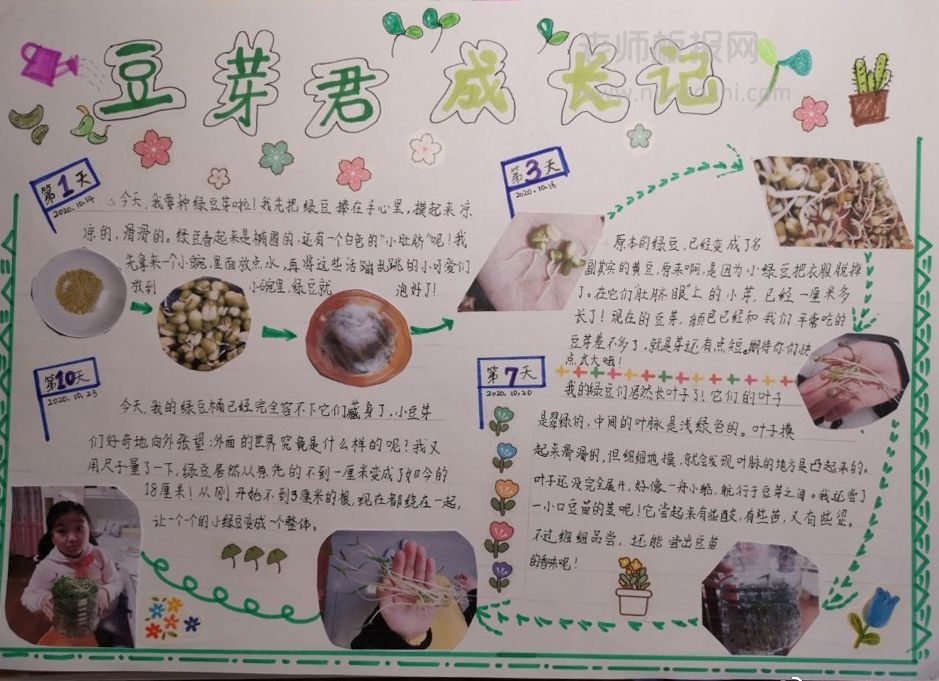 豆芽君成长记
老师板报网
第1天
2020.10.14
今天,我要种绿豆芽啦!我先把绿豆捧在手心里,摸起来凉
凉的,滑滑的。绿豆看起来是椭圆的,还有一个白色的“小肚脐”呢!我
先拿来一个小碗,里面放点水,再将这些活蹦乱跳的小可爱们
放到 小碗里,绿豆就 泡好了!
第3天
2020.10.16
原本的绿豆,已经变成了名
副其实的黄豆,原来啊,是因为小绿豆把衣服脱掉
了。在它们“肚脐眼”上的小芽,已经一厘米多
长了!现在的豆芽,颜色已经和我们平常吃的
豆芽差不多了,就是芽还有点短。期待你们快
点大大哦!
第7天
2020.10.20
我的绿豆们居然长叶子了!它们的叶子
是翠绿的,中间的叶脉是浅绿色的。叶子摸
起来滑滑的,但细细地摸,就会发现叶脉的地方是凸起来的。
叶子还没完全展开,好像一舟小船,航行于豆芽之海。我还尝了
一小口豆苗的茎呢!它尝起来有些酸,有些苦,又有些涩。
不过细细品尝,还能尝出豆苗
的香味呢!
第10天
2020.10.23
今天,我的绿豆桶已经完全容不下它们藏身了,小豆芽
们好奇地向外张望:外面的世界究竟是什么样的呢?我又
用尺子量了一下,绿豆居然从原先的不到一厘米变成了如今的
18厘米!从刚开始不到3厘米的根,现在都绕在一起,
让一个个的小绿豆变成一个整体。